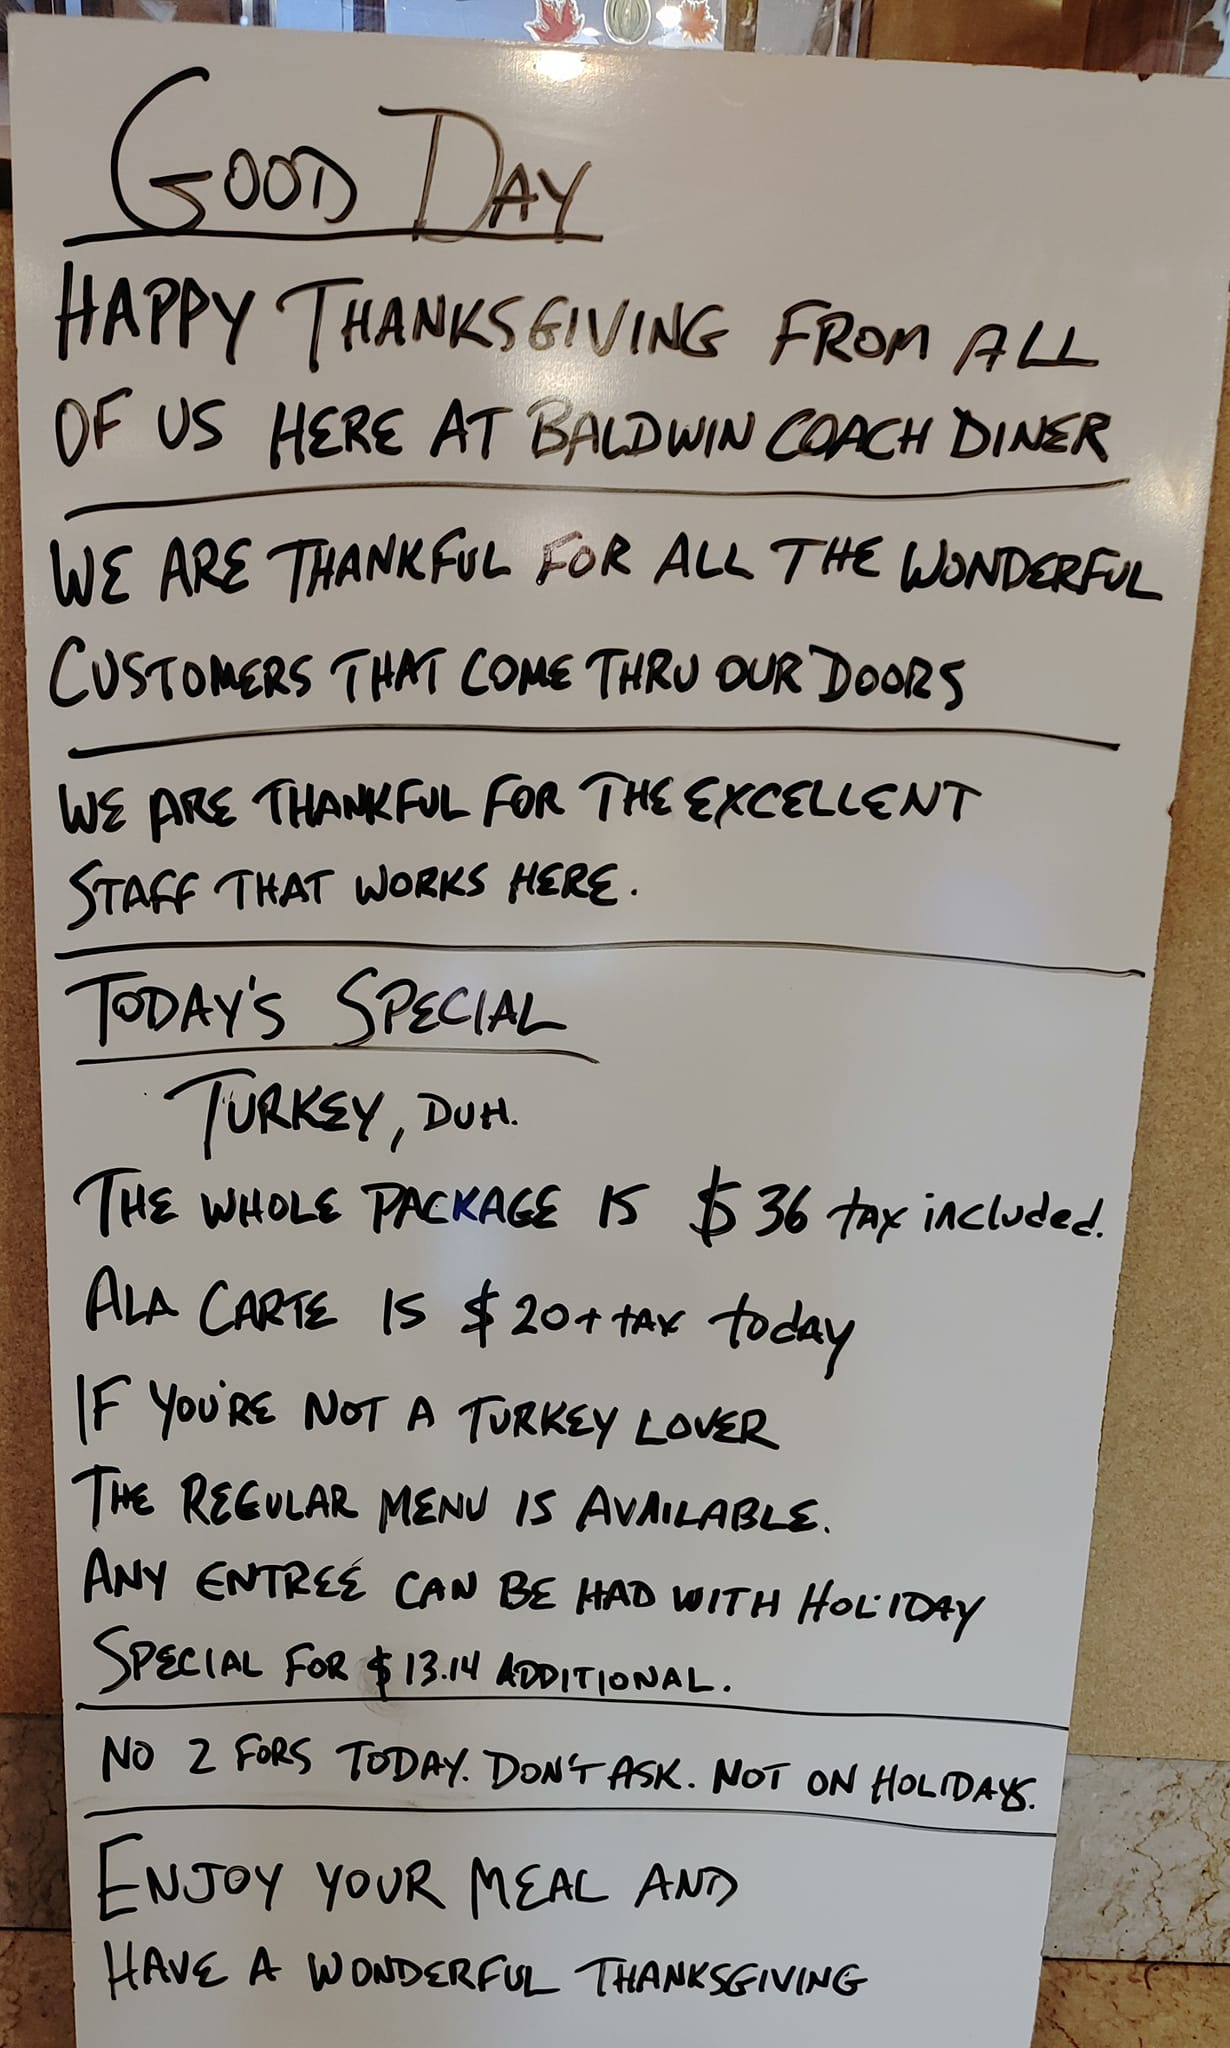 GOOD DAY
HAPPY THANKSGIVING FROM ALL
OF US HERE AT BALDWIN COACH DINER
WE ARE THANKFUL FOR ALL THE WONDERFUL
CUSTOMERS THAT COME THRU OUR DOORS
WE ARE THANKFUL FOR THE EXCELLENT
STAFF THAT WORKS HERE.
TODAY'S SPECIAL
TURKEY, DUH.
THE WHOLE PACKAGE IS $36 tax included.
ALA CARTE IS $20+ tax today
IF YOU'RE NOT A TURKEY LOVER
THE REGULAR MENU IS AVAILABLE.
ANY ENTREÉ CAN BE HAD WITH HOLIDAY
SPECIAL FOR $13.14 ADDITIONAL.
NO 2 FORS TODAY. DON'T ASK. NOT ON HOLIDAYS.
ENJOY YOUR MEAL AND
HAVE A WONDERFUL THANKSGIVING